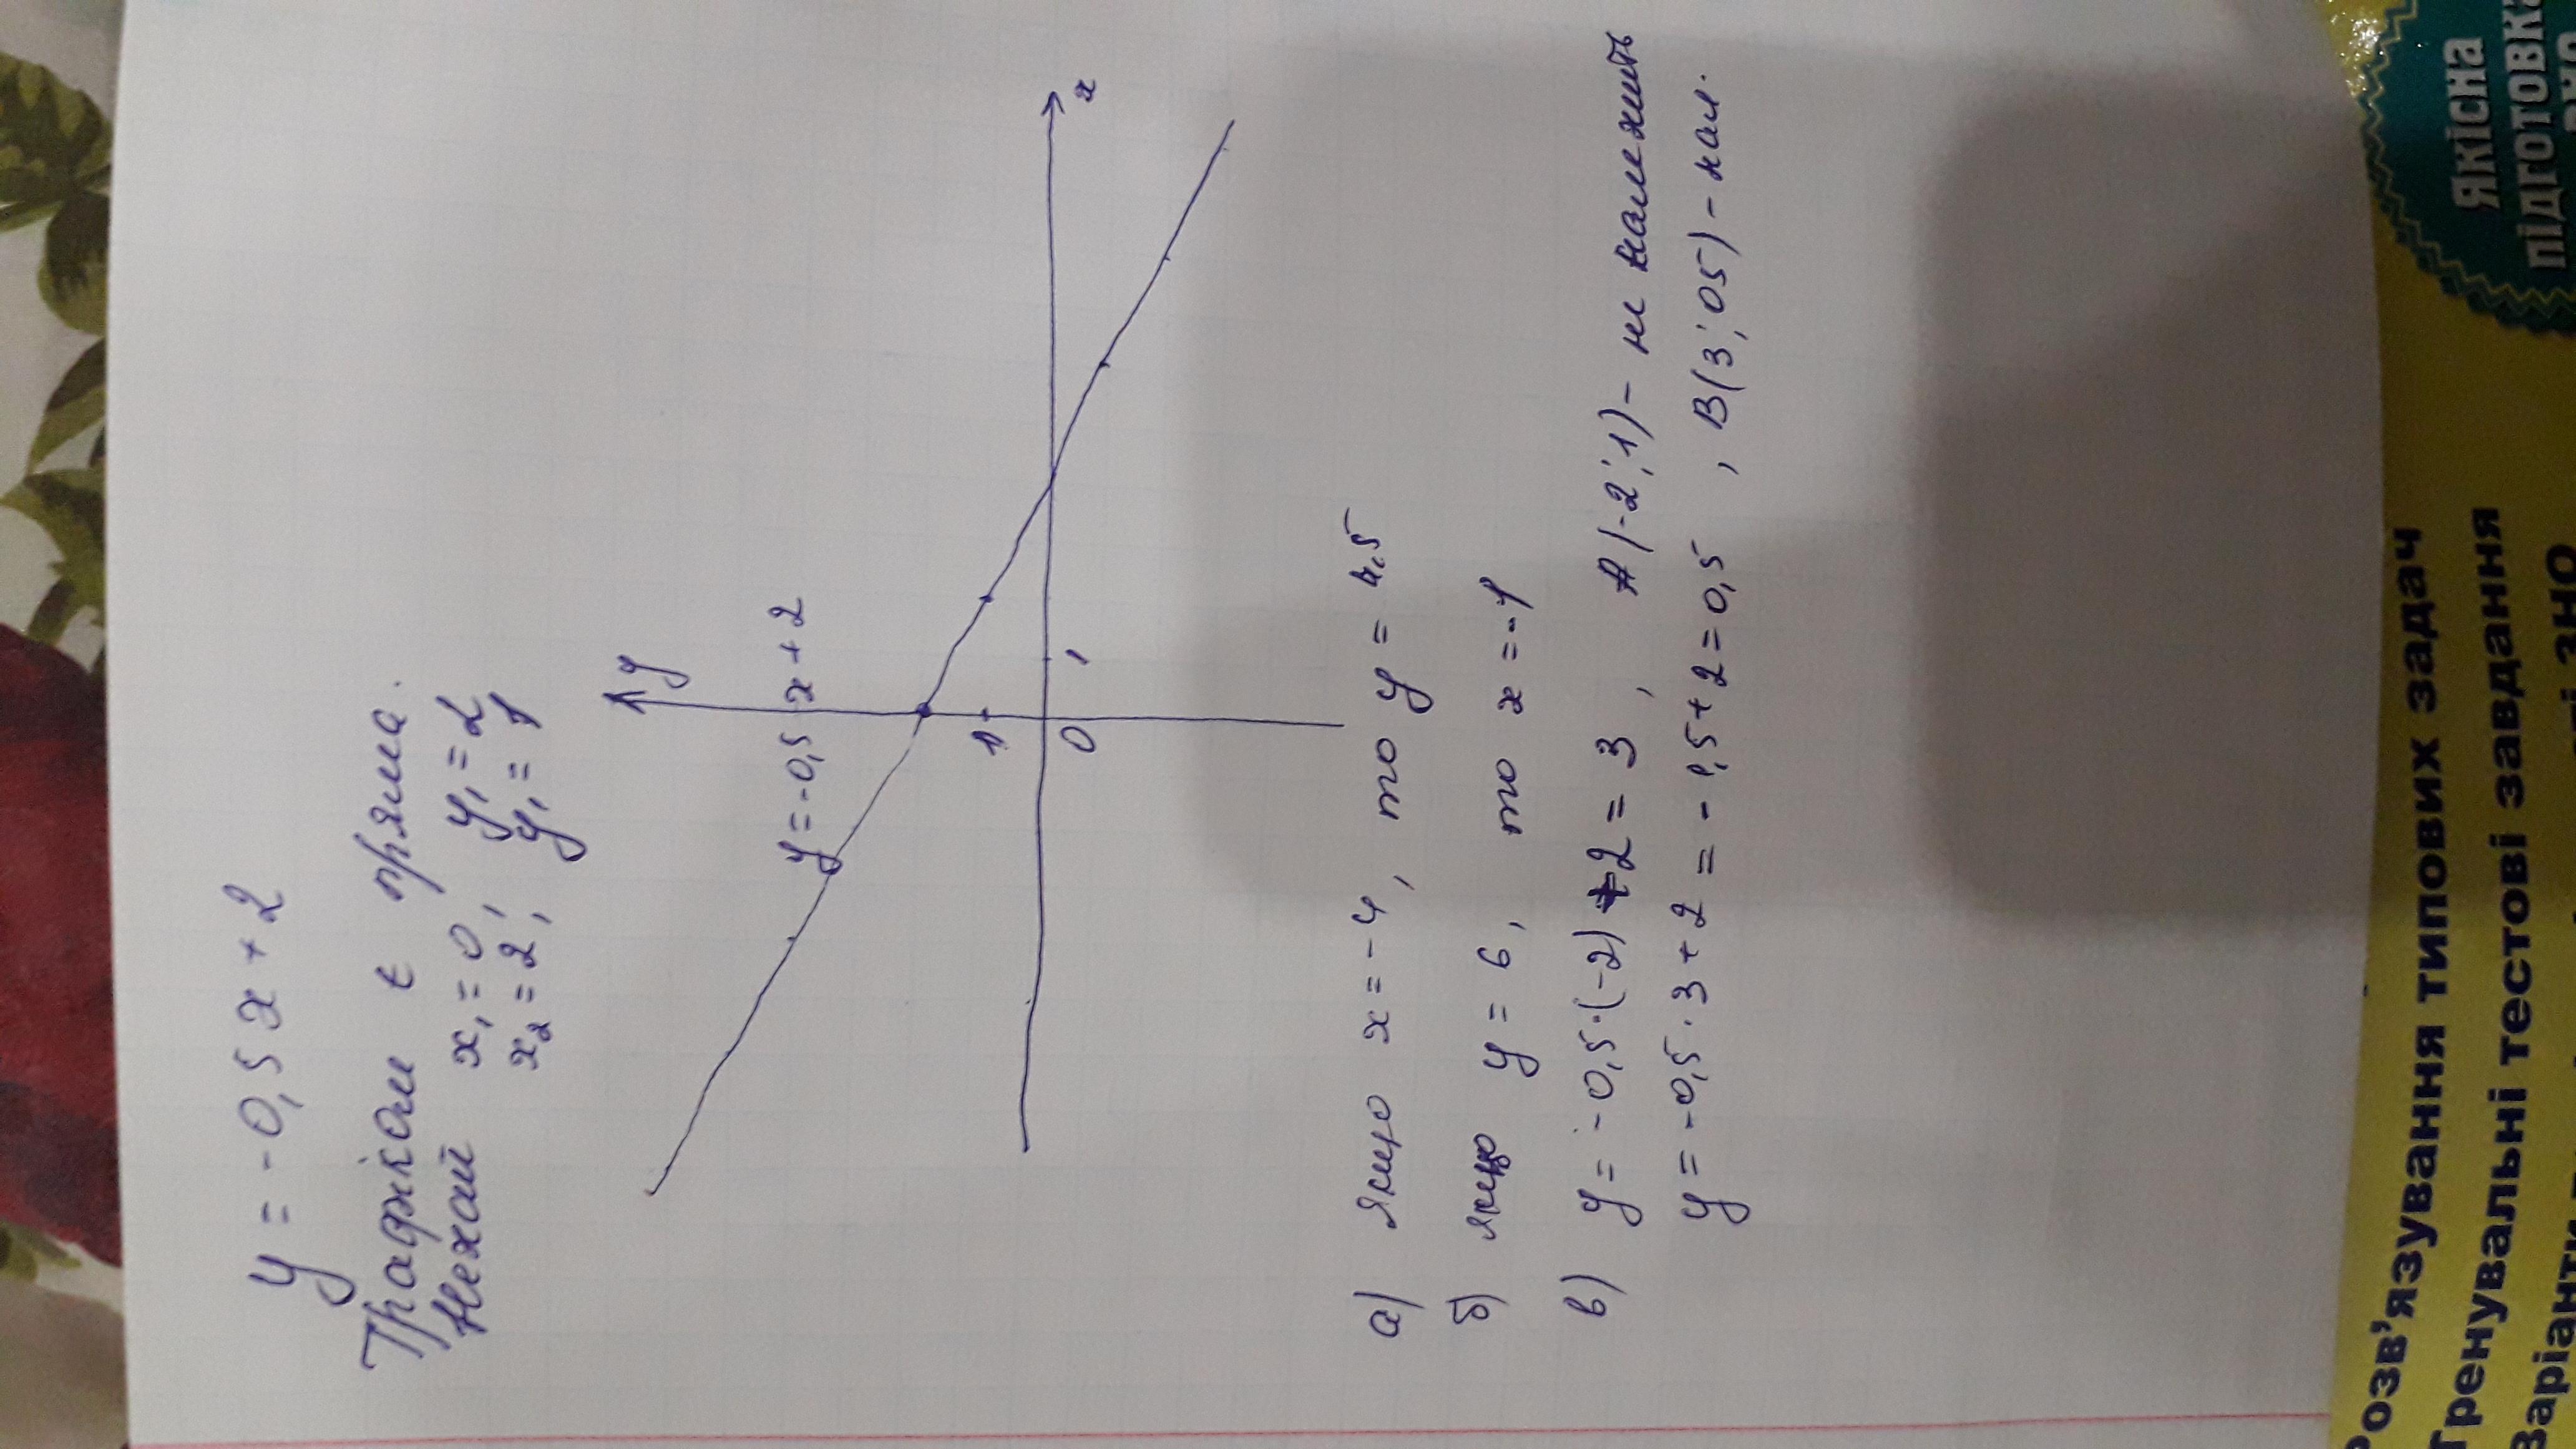 y = -0,5 x + 2
Графіком є пряма.
Нехай x₁ = 0, y₁ = 2
x₂ = 2, y₁ = 1
y
y = -0,5 x + 2
1
0
1
x
а) якщо x = -4, то y = 4,5
б) якщо y = 6, то x = -1
в) y = -0,5·(-2) + 2 = 3, A(-2; 1) - не належить
y = -0,5 · 3 + 2 = -1,5 + 2 = 0,5, B(3; 05) - нал.
Розв'язування типових задач
Тренувальні тестові завдання
ЗНО
ЯКІСНА
ПІДГОТОВКА